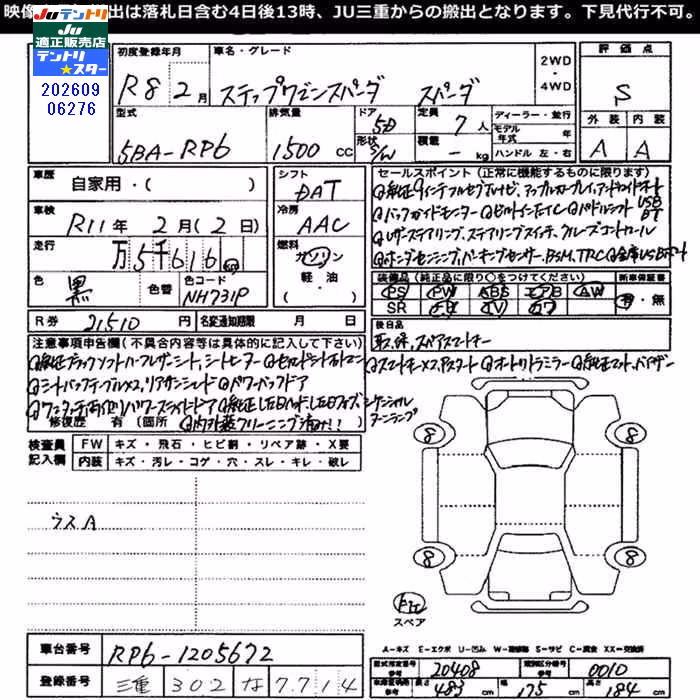 映像 出は落札日含む4日後13時、JU三重からの搬出となります。下見代行不可。
JUテントリ
JU
適正販売店
テントリ
★スター
202609
06276
初度登録年月 車名・グレード 2WD ・ 4WD 評価点
R8 2月 ステップワゴンスパーダ スパーダ S
型式 排気量 ドア 形状 定員 積載 ディーラー・並行 外装 内装
5BA-RP6 1500cc 5D S/W 7人 -kg モデル年式 年 ハンドル 左・右 A A
車歴 自家用・( ) シフト DAT
車検 R11年 2月(2日) 冷房 AAC
走行 万5千616km 燃料 ガソリン・軽・油・( )
色 黒 色替 色コード NH731P
R券 21510円 名変通知期限 月 日
セールスポイント(正常に機能するものに限ります)
◎純正9インチフルセグナビ、アップルカープレイ、アンドロイドオート
◎バックガイドモニター ◎ビルトインETC ◎パドルシフト USB BT
◎レザーステアリング、ステアリングスイッチ、クルーズコントロール
◎ホンダセンシング、パーキングセンサー、BSM、TRC ◎全席USBポート
装備品(純正品に限り○をつけてください) 新車保証書
PS PW ABS エアB AW 有・無
SR 革 TV ナビ
後日品
取、保、スペアスマートキー
注意事項申告欄(不具合内容等は具体的に記入して下さい)
◎純正ブラックソフトハーフレザーシート、シートヒーター ◎セカンドシートオットマン ◎スマートキーX2、Pスタート ◎オートリトラミラー ◎純正マット、バイザー
◎シートバックテーブルX2、リアサンシェード ◎パワーバックドア
◎ワンタッチ両側パワースライドドア ◎純正LEDヘッド、LEDフォグ シーケンシャルターンランプ
修復歴 有(箇所 ◎内外装クリーニング済み!!
検査員記入欄 FW キズ・飛石・ヒビ割・リペア跡・X要
内装 キズ・汚レ・コゲ・穴・スレ・キレ・破レ
ウスA
8 8
8 8
スペア
車台番号 RP6-1205672
登録番号 三重 302 な 7714
A-キズ E-エクボ U-凹み W-補修跡 S-サビ C-腐食 XX-交換済
型式指定番号 20408 類別区分番号 0010
長さ 483cm 幅 175cm 高さ 184cm